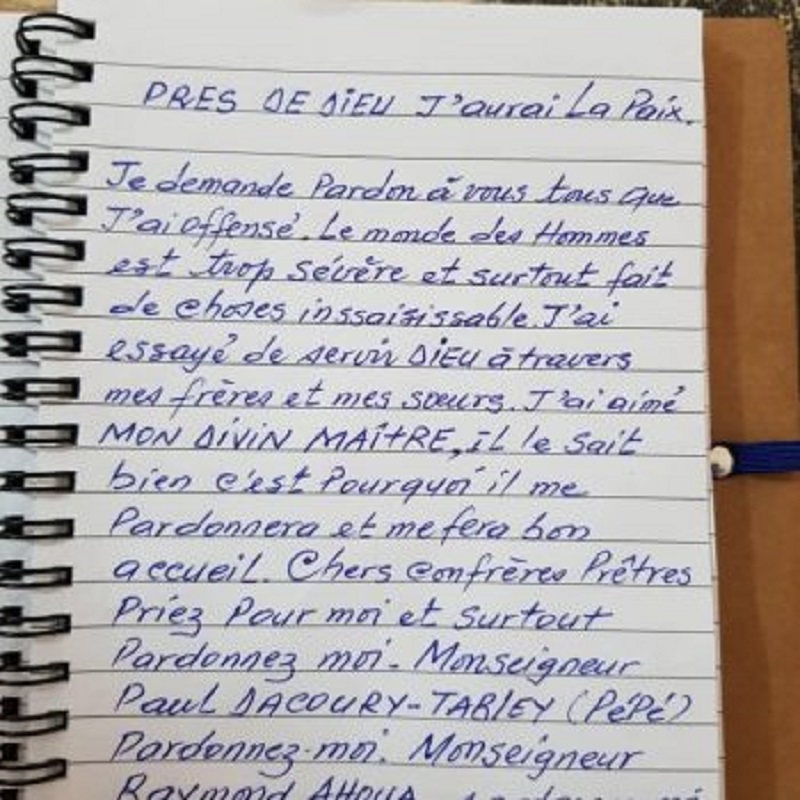 PRES DE DIEU J'aurai La Paix.
Je demande Pardon à vous tous que
J'ai offensé. Le monde des Hommes
est trop sévère et surtout fait
de choses inssaisissable. J'ai
essayé de servir DIEU à travers
mes frères et mes sœurs. J'ai aimé
MON DIVIN MAÎTRE, IL le sait
bien c'est Pourquoi il me
Pardonnera et me fera bon
accueil. Chers confrères Prêtres
Priez Pour moi et surtout
Pardonnez moi. Monseigneur
Paul DACOURY-TABLEY (PéPé)
Pardonnez-moi. Monseigneur
Raymond AHOUA